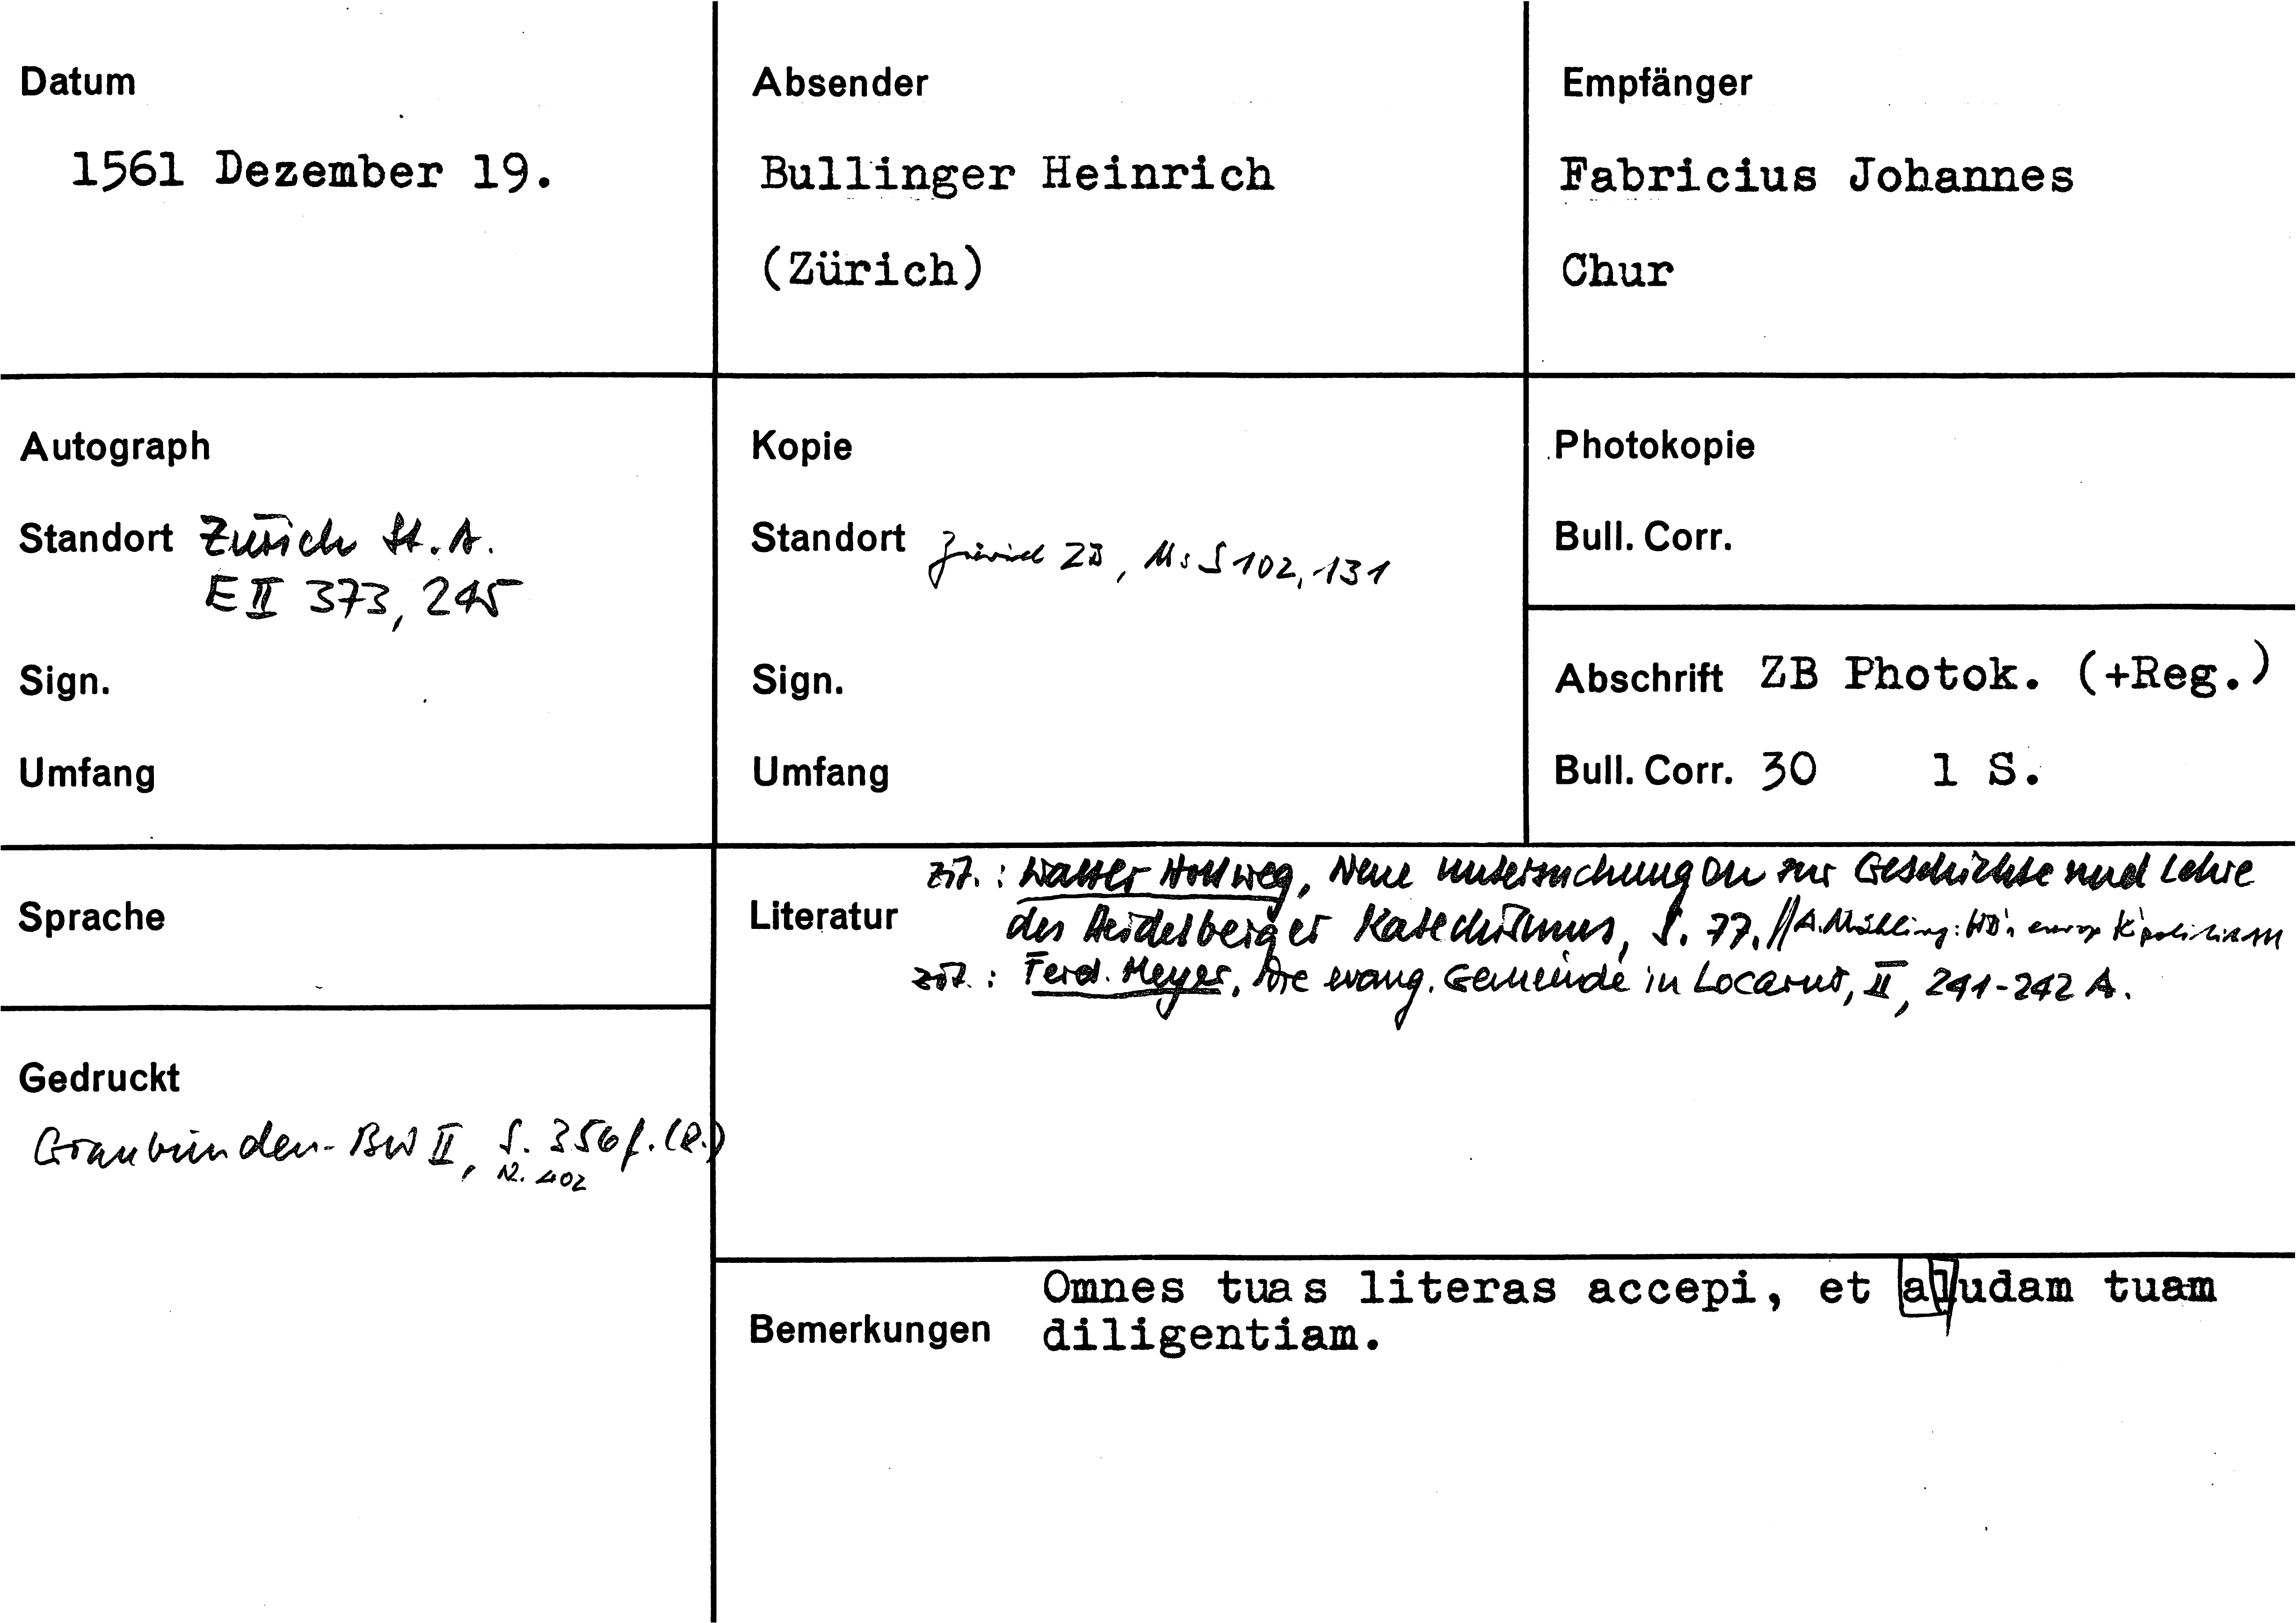 Datum
1561 Dezember 19.
Absender
Bullinger Heinrich
(Zürich)
Empfänger
Fabricius Johannes
Chur
Autograph
Standort Zürich St. A.
E II 373, 245
Sign.
Umfang
Kopie
Standort Zürich ZB, Ms S 102, 131
Sign.
Umfang
Photokopie
Bull. Corr.
Abschrift ZB Photok. (+Reg.)
Bull. Corr. 30 1 S.
Sprache
Gedruckt
Graubünden-BW II, S. 356 f. (R.)
N. 402
Literatur
zit.: Walter Hollweg, Neue Untersuchungen zur Geschichte und Lehre
des Heidelberger Katechismus, S. 77. // A. Mühling: HB's europ K'politik
zit.: Ferd. Meyer, Die evang. Gemeinde in Locarno, II, 241-242 A.
Bemerkungen
Omnes tuas literas accepi, et aludam tuam
diligentiam.